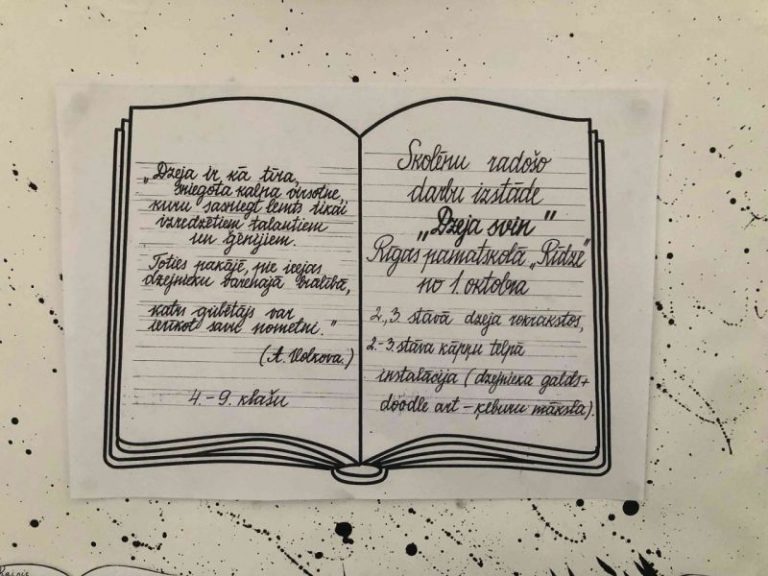 „Dzeja ir kā tīra,
sniegota kalna virsotne,
kuru sasniegt lemts tikai
izredzētiem talantiem
un ģēnijiem.
Toties pakājē, pie ieejas
dzejnieku varenajā
katrs gribētājs var
ierīkot savu nometni."
(A. Volkova.)
4.-9. klašu
Skolēnu radošo
darbu izstāde
„Dzeja svin"
Rīgas pamatskolā „Rīdze"
no 1. oktobra
2., 3. stāvā dzeja rokrakstos,
2.-3. stāva kāpņu telpā
instalācija (dzejnieka galds+
doodle art - ķeburu māksla).